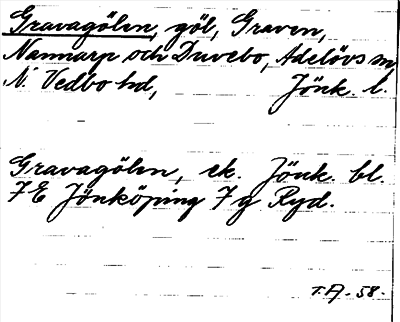 Gravagölen, göl, Graven,
Nannarp och Duvebo, Adelövs sn,
N. Vedbo hd, Jönk. l.
Gravagölen, ek. Jönk. bl.
7E Jönköping 7 g Ryd.
T.A. -58-